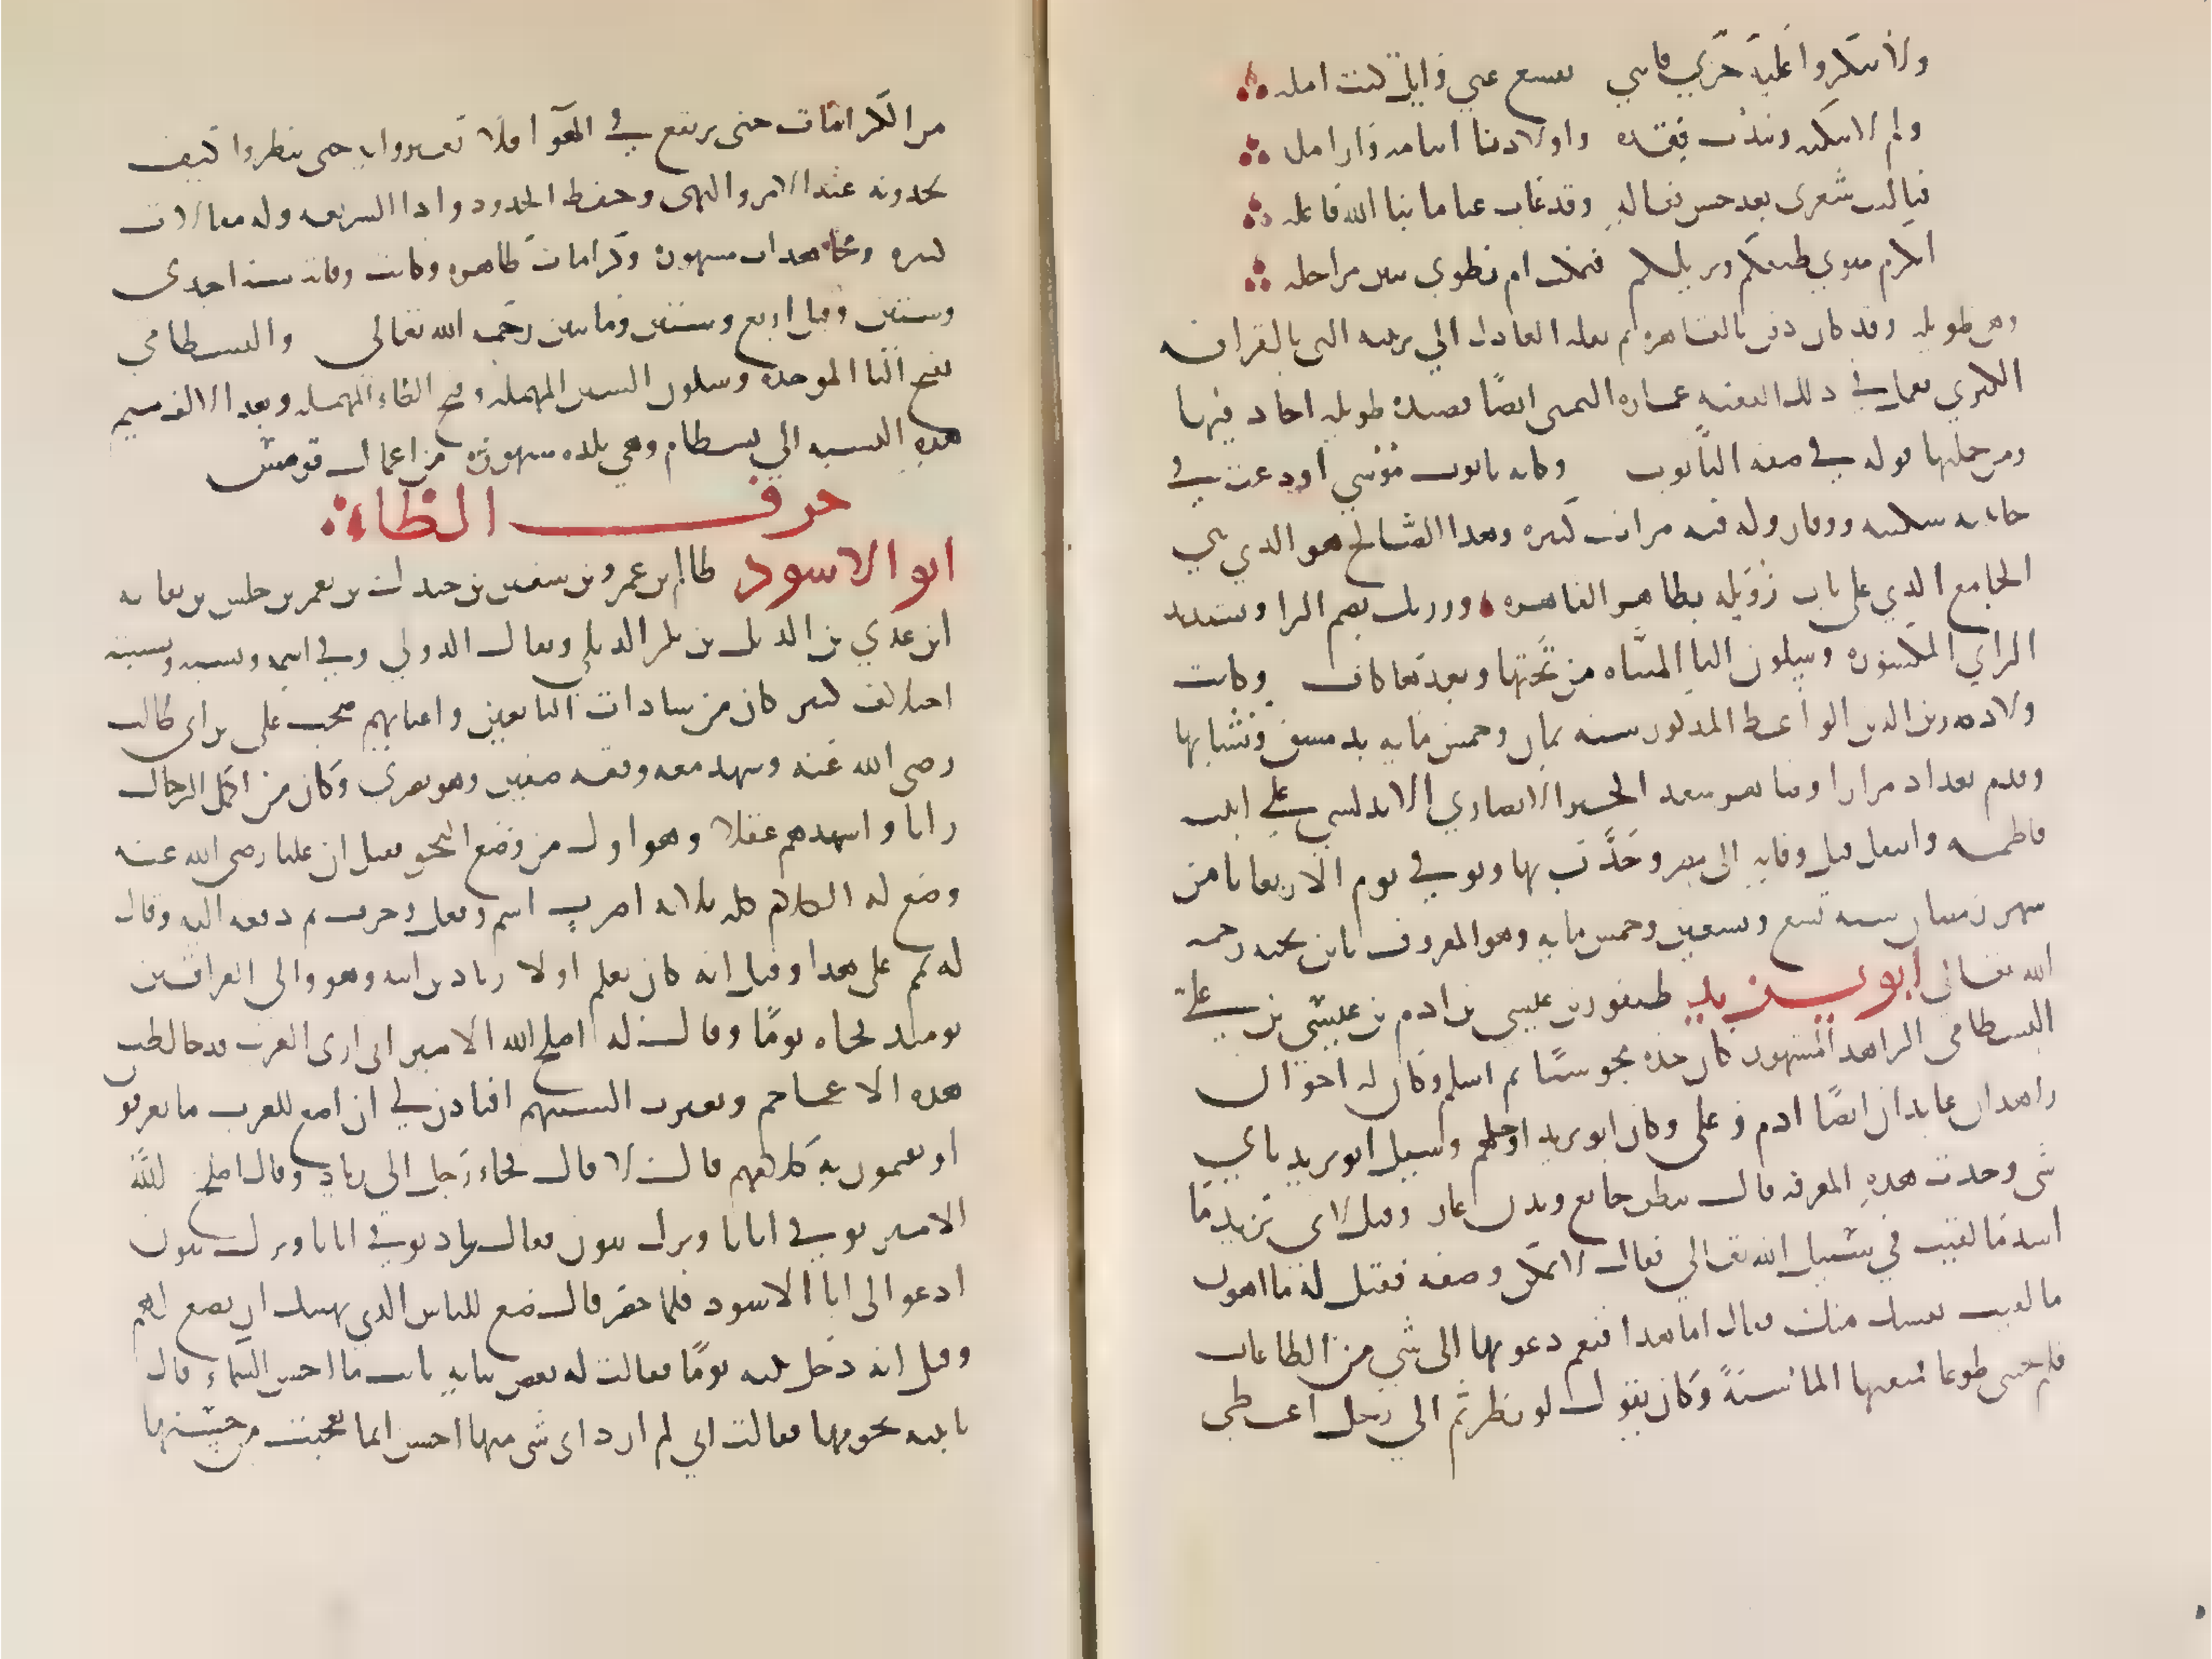 ولا تنكروا عليه حزني فانني تقشع عني وابل كنت امله
ولم لا نبكيه ونندب فقده واولادنا ايتامه وارامله
فياليت شعري بعد حسن فعاله وقد غاب عنا ما بنا الله فاعله
اكرم مثوي ضيفكم وغريبكم فيمكث ام تطوي ببين مراحله
وهي طويلة وقد كان دفن بالقاهره ثم نقله العادل الي تربته التي بالقرافه
الكبري فعمل في ذلك الفقيه عماره اليمني ايضا قصيده طويله اجاد فيها
ومن جملتها قوله في صفه التابوت وكانه تابوت موسي اودعت في
جانبيه سكينه ووقار وله فيه مراثي كثيره وهذا الصالح هو الذي بني
الجامع الذي علي باب زويله بظاهر القاهره ورزيك بضم الرا وتشديد
الزاي المكسوره وسكون اليا المثناه من تحتها وبعدها كاف وكانت
ولاده زين الدين الواعظ المذكور سنه ثمان وخمس مايه بدمشق ونشا بها
وقدم بغداد مرارا وصاهر سعد الخير الانصاري الاندلسي علي ابنته
فاطمه وانتقل قبل وفاته الي مصر وحدث بها وتوفي يوم الاربعا ثامن
شهر رمضان سنه تسع وتسعين وخمس مايه وهو المعروف بابن نجيه رحمه
الله تعالي ابو يزيد طيفور بن عيسي بن ادم بن عيسي بن علي
البسطامي الزاهد المشهور كان جده مجوسيا ثم اسلم وكان له اخوان
زاهدان عابدان ايضا ادم وعلي وكان ابو يزيد اجلهم وسيل ابو يزيد باي
شي وجدت هذه المعرفه قال ببطن جايع وبدن عار وقيل لابي يزيد ما
اشد ما لقيت في سبيل الله تعالي فقال لا يمكن وصفه فقيل له ما اهون
ما لقيت نفسك منك فقال اما هذا فنعم دعوتها الي شي من الطاعات
فلم تجبني طوعا فمنعتها الما سنة وكان يقول لو نظرتم الي رجل اعطي
من الكرامات حتى يرتفع في الهوا فلا تغتروا به حتى تنظروا كيف
تجدونه عند الامر والنهي وحفظ الحدود وادا الشريعه وله مقالات
كثيره ومجاهدات مشهوره وكرامات ظاهره وكانت وفاته سنه احدى
وستين وقيل اربع وستين ومايتين رحمه الله تعالى والبسطامي
بفتح البا الموحده وسكون السين المهمله وفتح الطاء المهمله وبعد الالف ميم
هذه النسبه الي بسطام وهي بلده مشهوره من اعمال قومش
حرف الظاء
ابو الاسود ظالم بن عمرو بن سفين بن جندل بن يعمر بن حلس بن نفاثه
ابن عدي بن الديل بن بكر الديلي ويقال الدولي وفي اسمه ونسبه ونسبته
اختلاف كثير كان من سادات التابعين واعيانهم صحب علي بن ابي طالب
رضي الله عنه وشهد معه وقعه صفين وهو بصري وكان من اكمل الرجال
رايا واسدهم عقلا وهو اول من وضع النحو فقيل ان عليا رضي الله عنه
وضع له الكلام كله ثلاثه اضرب اسم وفعل وحرف ثم دفعه اليه وقال
له تمم علي هذا وقيل انه كان يعلم اولاد زياد بن ابيه وهو والي العراقين
يوميذ فجاه يوما وقال له اصلح الله الامير اني ارى العرب قد خالطت
هذه الاعاجم وتغيرت السنتهم افتاذن لي ان اضع للعرب ما يعرفون
او يقيمون به كلامهم قال لا قال فجاء رجل الي زياد وقال اصلح الله
الامير توفي ابانا وترك بنون فقال زياد توفي ابانا وترك بنون
ادعوا الي ابا الاسود فلما حضر قال ضع للناس الذي نهيتك ان تضع لهم
وقيل انه دخل بيته يوما فقالت له بعض بناته يا ابت ما احسن السماء قال
يا بنيه نجومها فقالت اني لم ارد اي شي منها احسن انما تعجبت من حسنها